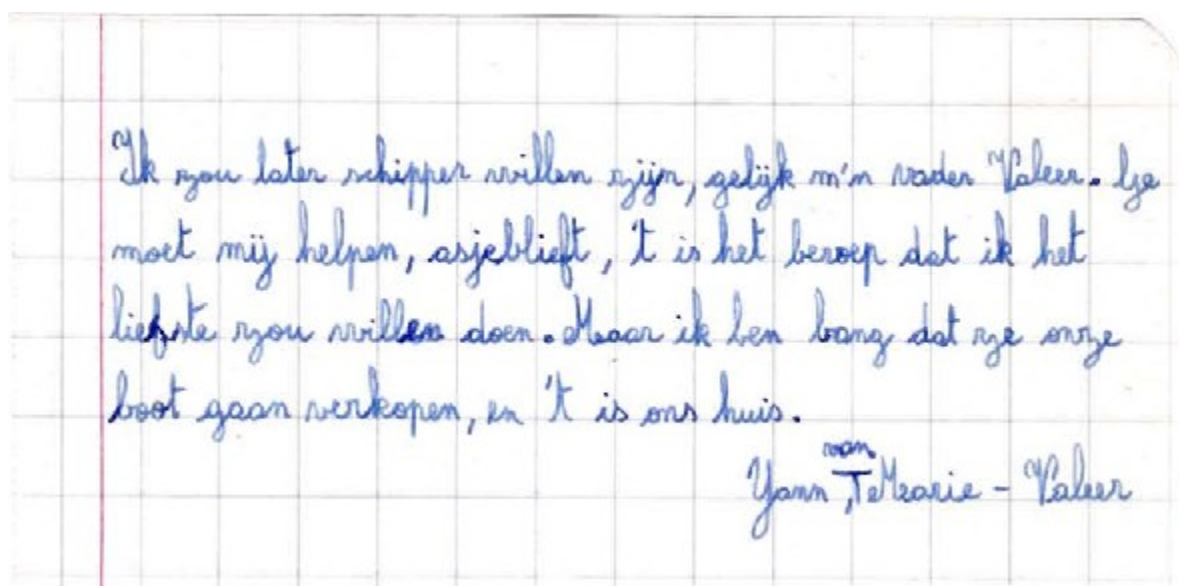 Ik zou later schipper willen zijn, gelijk m'n vader Valeer. Ge
moet mij helpen, asjeblieft, 't is het beroep dat ik het
liefste zou willen doen. Maar ik ben bang dat ze onze
boot gaan verkopen, en 't is ons huis.
van
Yann, Marie - Valeer